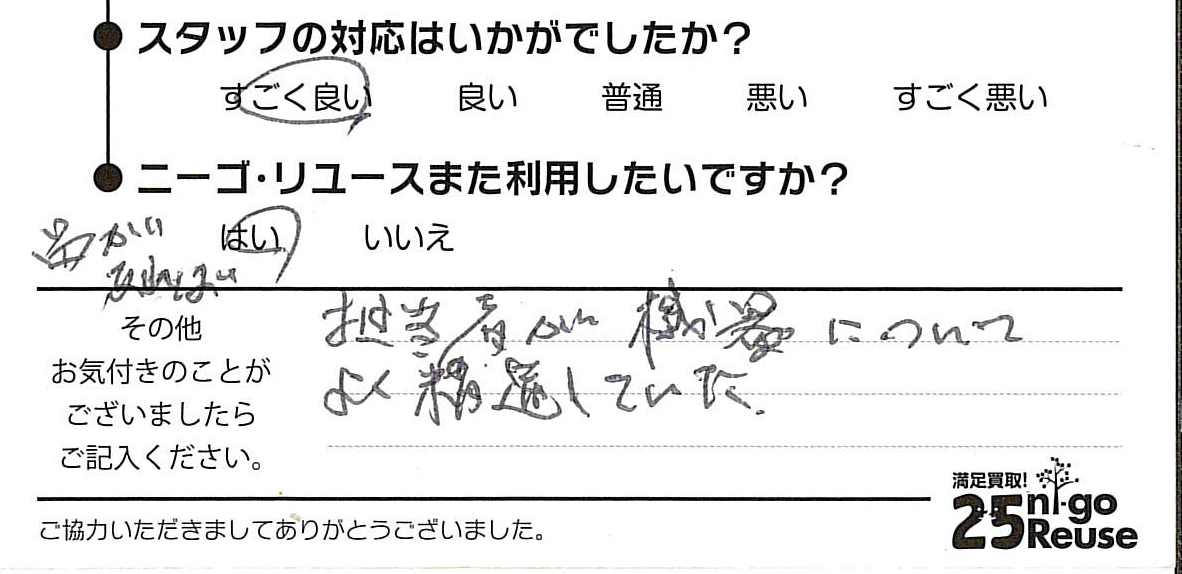 スタッフの対応はいかがでしたか?
すごく良い 良い 普通 悪い すごく悪い
ニーゴ・リユースまた利用したいですか?
はい いいえ
があれば
その他
お気付きのことが
ございましたら
ご記入ください。
担当者が機器について
よく精通していた.
ご協力いただきましてありがとうございました。
満足買取!
25 ni-go
Reuse